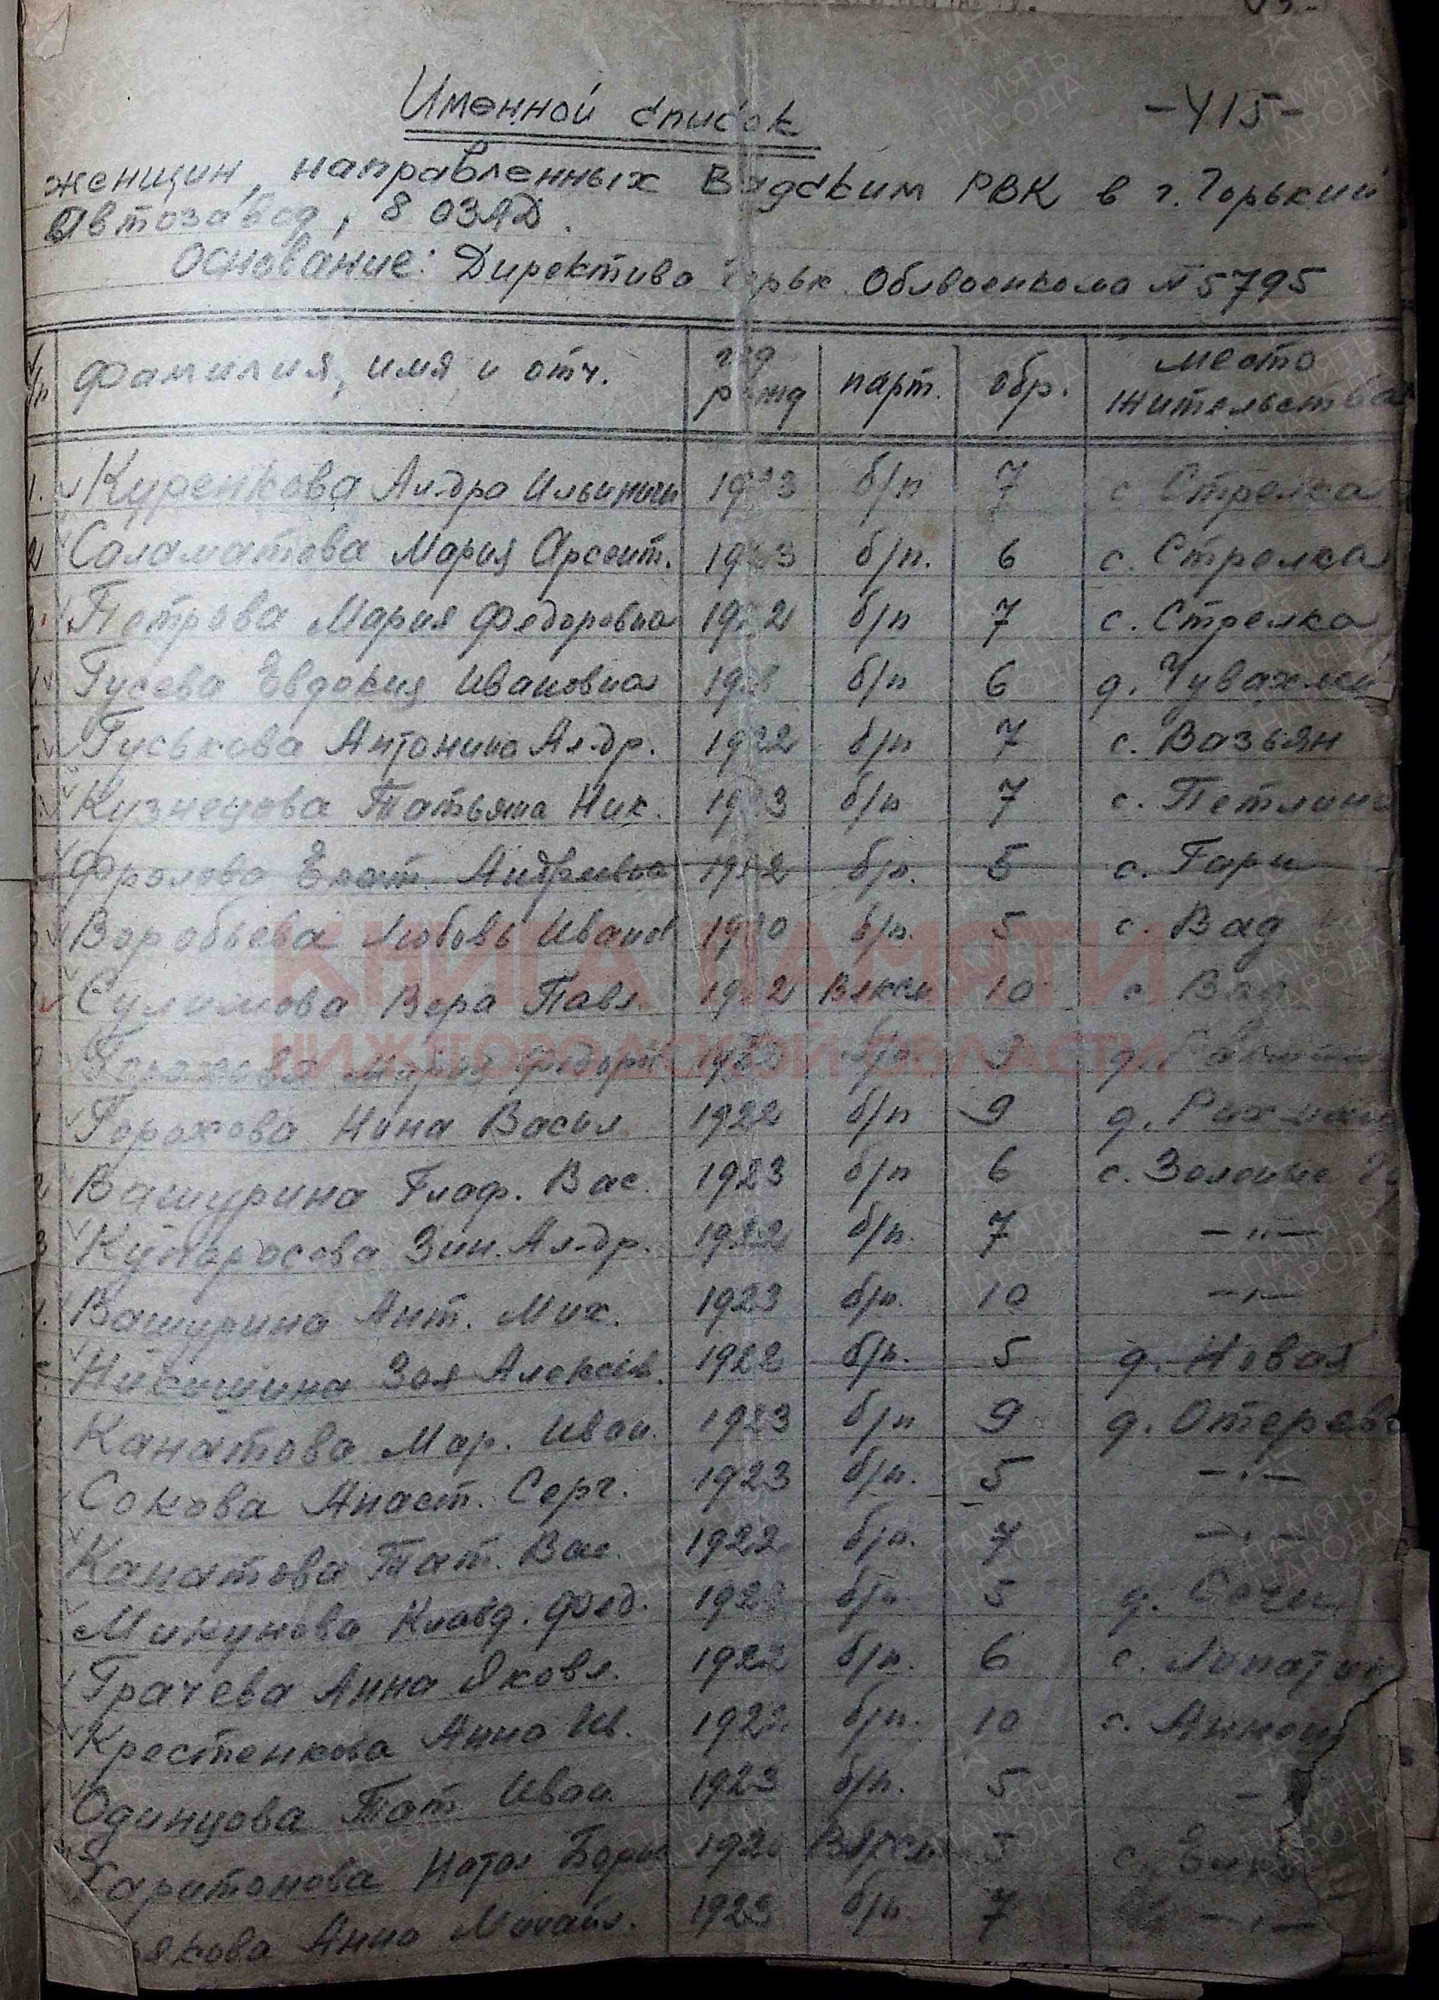 Именной список
-415-
женщин, направленных Вадским РВК в г. Горький
Автозавод, 8 ОЗАД.
Основание: Директива Горьк Облвоенкома № 5795
п/п фамилия, имя и отч. год рожд парт. обр. место жительства
1. Куренкова Ал-дра Ильинич 1923 б/п 7 с. Стрелка
2 Саламатова Мария Арсент. 1923 б/п. 6 с. Стрелка
Петрова Мария Федоровна 1922 б/п 7 с. Стрелка
Гусева Евдокия Ивановна б/п 6 д.
Гуськова Антонина Ал-др. 1922 б/п 7 с. Вазьян
Кузнецова Татьяна Ник. 1923 б/п 7 с. Петлино
Фролова Екат. Андреевна 1922 б/п. 5 с. Гари
Воробьева Любовь Иванов 1920 б/п. 5 с. Вад
Сулимова Вера Павл. 1922 Влксм 10 с. Вад
Горохова Мария Федор б/п 9 д.
Горохова Нина Васил 1922 б/п 9 д.
Вашурина Глаф. Вас. 1923 б/п 6 с. Зеленые
Кипарисова Зин. Ал-др. 1922 б/п. 7 -"-
Вашурина Ант. Мих. 1923 б/п. 10 -"-
Никишина Зоя Алексеев. 1922 б/п. 5 д. Новая
Канатова Мар. Иван. 1923 б/п 9 д. Отерево
Сокова Анаст. Серг. 1923 б/п. 5 -"-
Канатова Тат. Вас. 1922 б/п. 7 -"-
Микунова Клавд. Фед. б/п. 5 д.
Грачева Анна Яковл. 1922 б/п. 6 с.
Крестенкова Анна Ив. 1922 б/п. 10 с.
Одинцова Тат. Иван 1923 б/п. 5 -
Харитонова Натал Борис Влксм 5 с.
Анна Михайл. 1923 б/п. 7 -"-
КНИГА ПАМЯТИ
НИЖЕГОРОДСКОЙ ОБЛАСТИ
ПАМЯТЬ НАРОДА